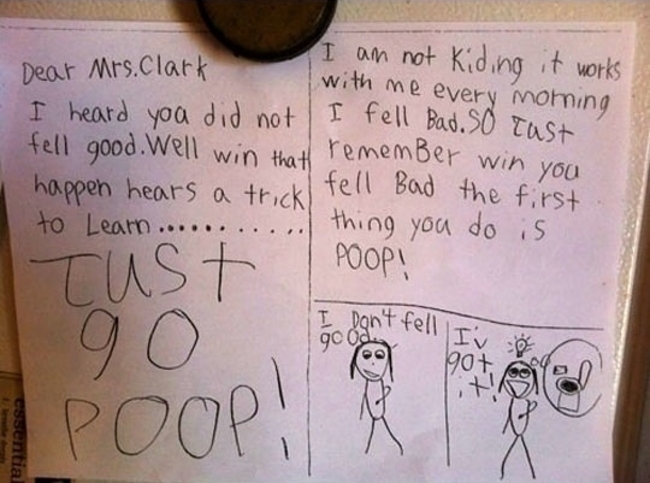 Dear Mrs.Clark
I heard you did not
fell good.Well win that
happen hears a trick
to Learn...........
JUST
go
POOP!
I am not Kiding it works
with me every morning
I fell Bad.SO JUST
rememBer win you
fell Bad the first
thing you do is
POOP!
I Don't fell
good.
I'v
got
it!
essential